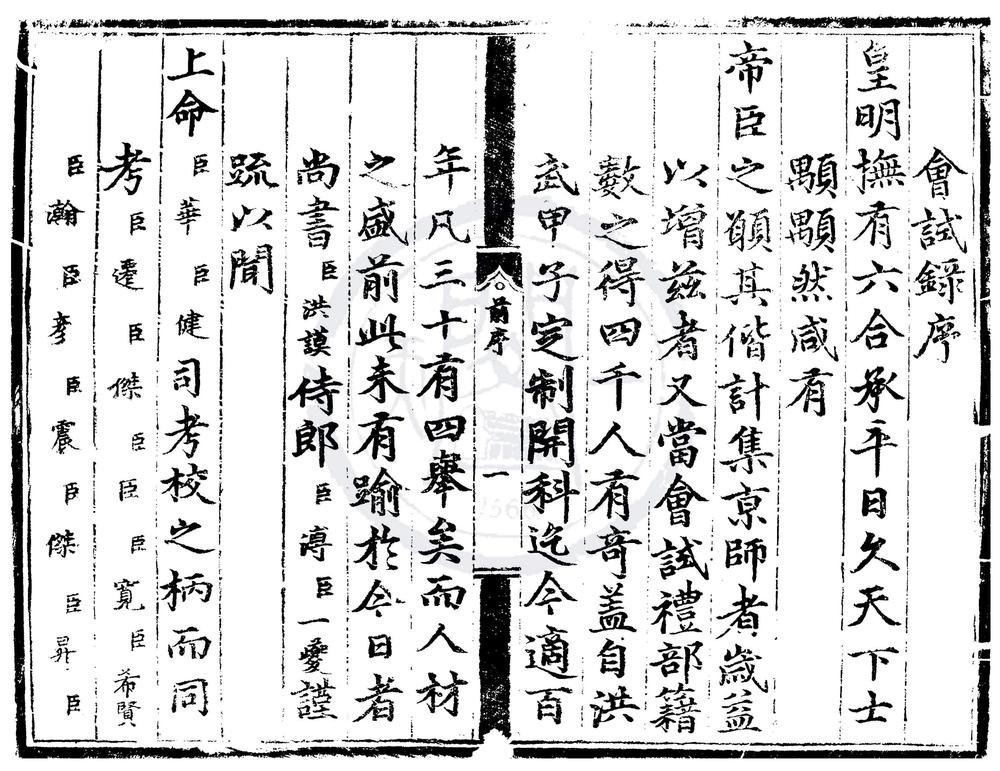 會試錄序
皇明撫有六合承平日久天下士
顒顒然咸有
帝臣之願其偕計集京師者歲益
以增茲者又當會試禮部籍
數之得四千人有奇蓋自洪
武甲子定制開科迄今適百
前序 一
年凡三十有四舉矣而人材
之盛前此未有踰於今日者
尚書臣洪謨侍郎臣溥臣一夔謹
疏以聞
上命臣華臣健司考校之柄而同
考臣遷臣傑臣臣臣寬臣希賢
臣瀚臣彥臣震臣傑臣昇臣